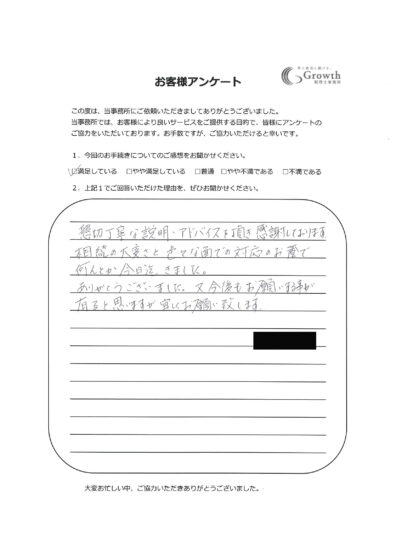 Growth
税理士事務所
お客様アンケート
この度は、当事務所にご依頼いただきましてありがとうございました。
当事務所では、お客様により良いサービスをご提供する目的で、皆様にアンケートの
ご協力をいただいております。お手数ですが、ご協力いただけると幸いです。
1．今回のお手続きについてのご感想をお聞かせください。
☑満足している　□やや満足している　□普通　□やや不満である　□不満である
2．上記1でご回答いただけた理由を、ぜひお聞かせください。
懇切丁寧な説明・アドバイスを頂き感謝しております
相続の大変さと色々な面での対応のお蔭で
何んとか今日迄きました。
ありがとうございました。又今後もお願いする事が
有ると思いますが宜しくお願い致します
大変お忙しい中、ご協力いただきありがとうございました。